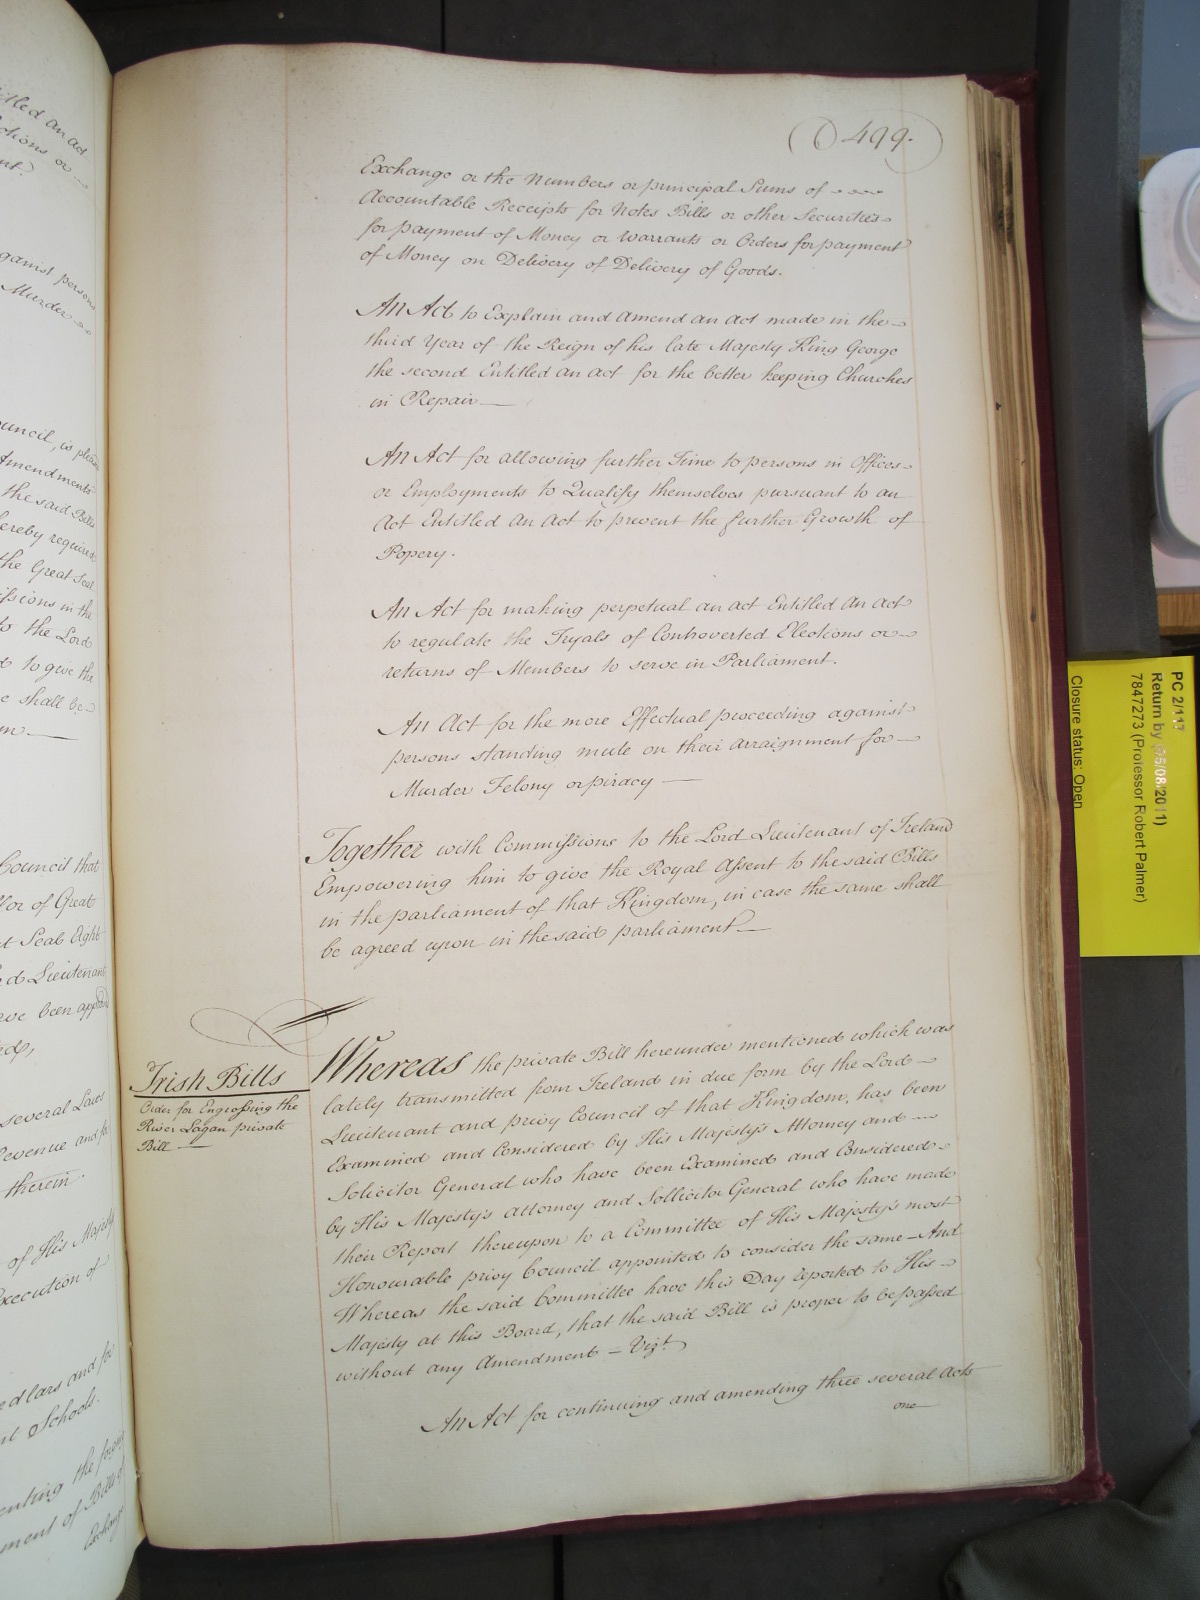 499.
Exchange or the Numbers or principal Sums of
Accountable Receipts for Notes Bills or other Securities
for payment of Money or Warrants or Orders for payment
of Money on Delivery of Delivery of Goods.
An Act to Explain and Amend an Act made in the
third Year of the Reign of his late Majesty King George
the second Entitled an Act for the better keeping Churches
in Repair
An Act for allowing further Time to persons in Offices
or Employments to Qualify themselves pursuant to an
Act Entitled An Act to prevent the further Growth of
Popery.
An Act for making perpetual an Act Entitled An Act
to regulate the Tryals of Controverted Elections or
returns of Members to serve in Parliament.
An Act for the more Effectual proceeding against
persons standing mute on their arraignment for
Murder Felony or piracy
Together with Commissions to the Lord Lieutenant of Ireland
Empowering him to give the Royal Assent to the said Bills
in the parliament of that Kingdom, in case the same shall
be agreed upon in the said parliament
Irish Bills
Order for Engrossing the
River Lagan private
Bill
Whereas the private Bill hereunder mentioned which was
lately transmitted from Ireland in due form by the Lord
Lieutenant and privy Council of that Kingdom, has been
Examined and Considered by His Majesty's Attorney and
Solicitor General who have been Examined and Considered
by His Majesty's Attorney and Sollicitor General who have made
their Report thereupon to a Committee of His Majesty's most
Honourable privy Council appointed to consider the same - And
Whereas the said Committee have this Day reported to His
Majesty at this Board, that the said Bill is proper to be passed
without any Amendment - Vizt.
An Act for continuing and amending three several Acts
one
PC 2/117
Return by (05/08/2011)
7847273 (Professor Robert Palmer)
Closure status: Open
itled An Act
ctions or
against persons
Murder
ouncil, is
Amendments
the said Bills
ereby required
the Great Seal
issions in the
to the Lord
to give the
e shall be
Council that
lor of Great
t Seal Eight
d Lieutenant
ve been
several Laws
evenue and
therein.
of His Majesty
xecution of
edlars and for
nt Schools.
enting the
ment of Bills of
Exchange